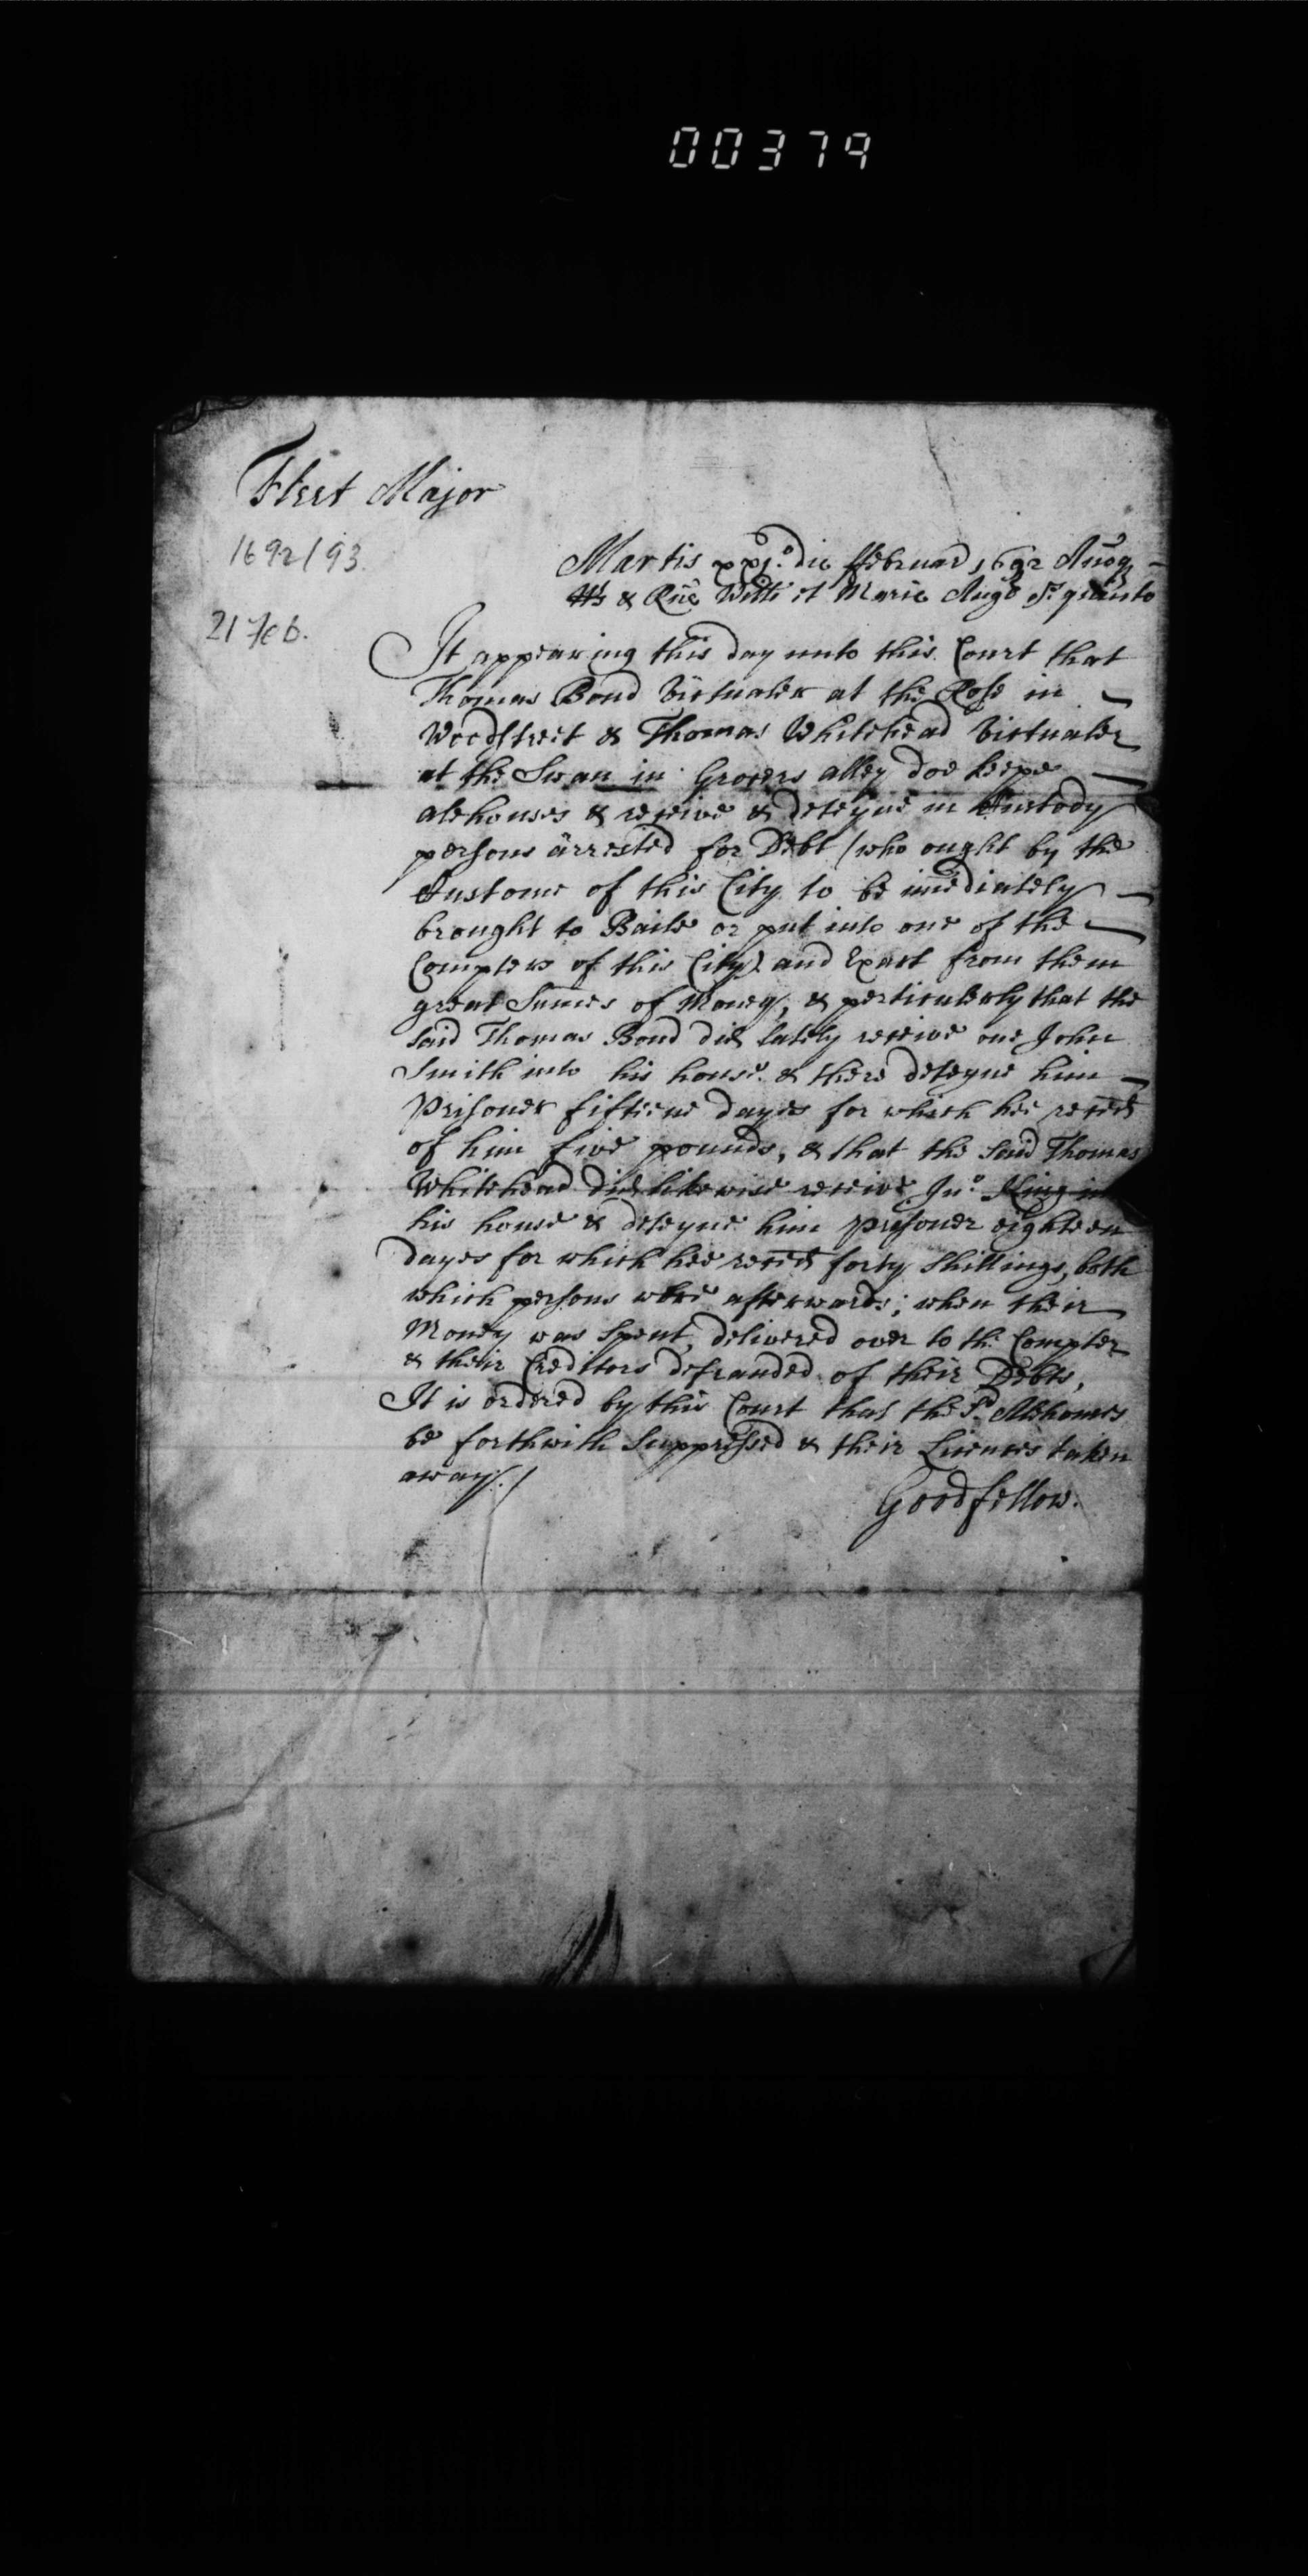 00379
Fleet Major
1692/93
21 Feb.
Martis xxj.o die ffebruar 1692 Annoq
Rs & Rne Willi et Marie Angl &c quinto
It appearing this day unto this Court that
Thomas Bond Victualer at the Rose in
Woodstreet & Thomas Whitehead Victualer
at the Swan in Grocers alley doe keepe
alehouses & receive & deteyne in Custody
persons arrested for Debt (who ought by the
Custome of this City to be imediately
brought to Baile or put into one of the
Compters of this City) and Exact from them
great Sumes of Money, & perticulerly that the
said Thomas Bond did lately receive one John
Smith into his house & there deteyne him
Prisoner fifteene dayes for which hee reced
of him five pounds, & that the said Thomas
Whitehead did likewise receive Jno. King in
his house & deteyne him prisoner eighteen
dayes for which hee reced forty shillings, both
which persons were afterwards, when their
Money was spent, delivered over to the Compter
& their Creditors defrauded of their Debts,
It is ordered by this Court that the sd. Alehouses
be forthwith Suppressed & their Licences taken
away./
Goodfellow.